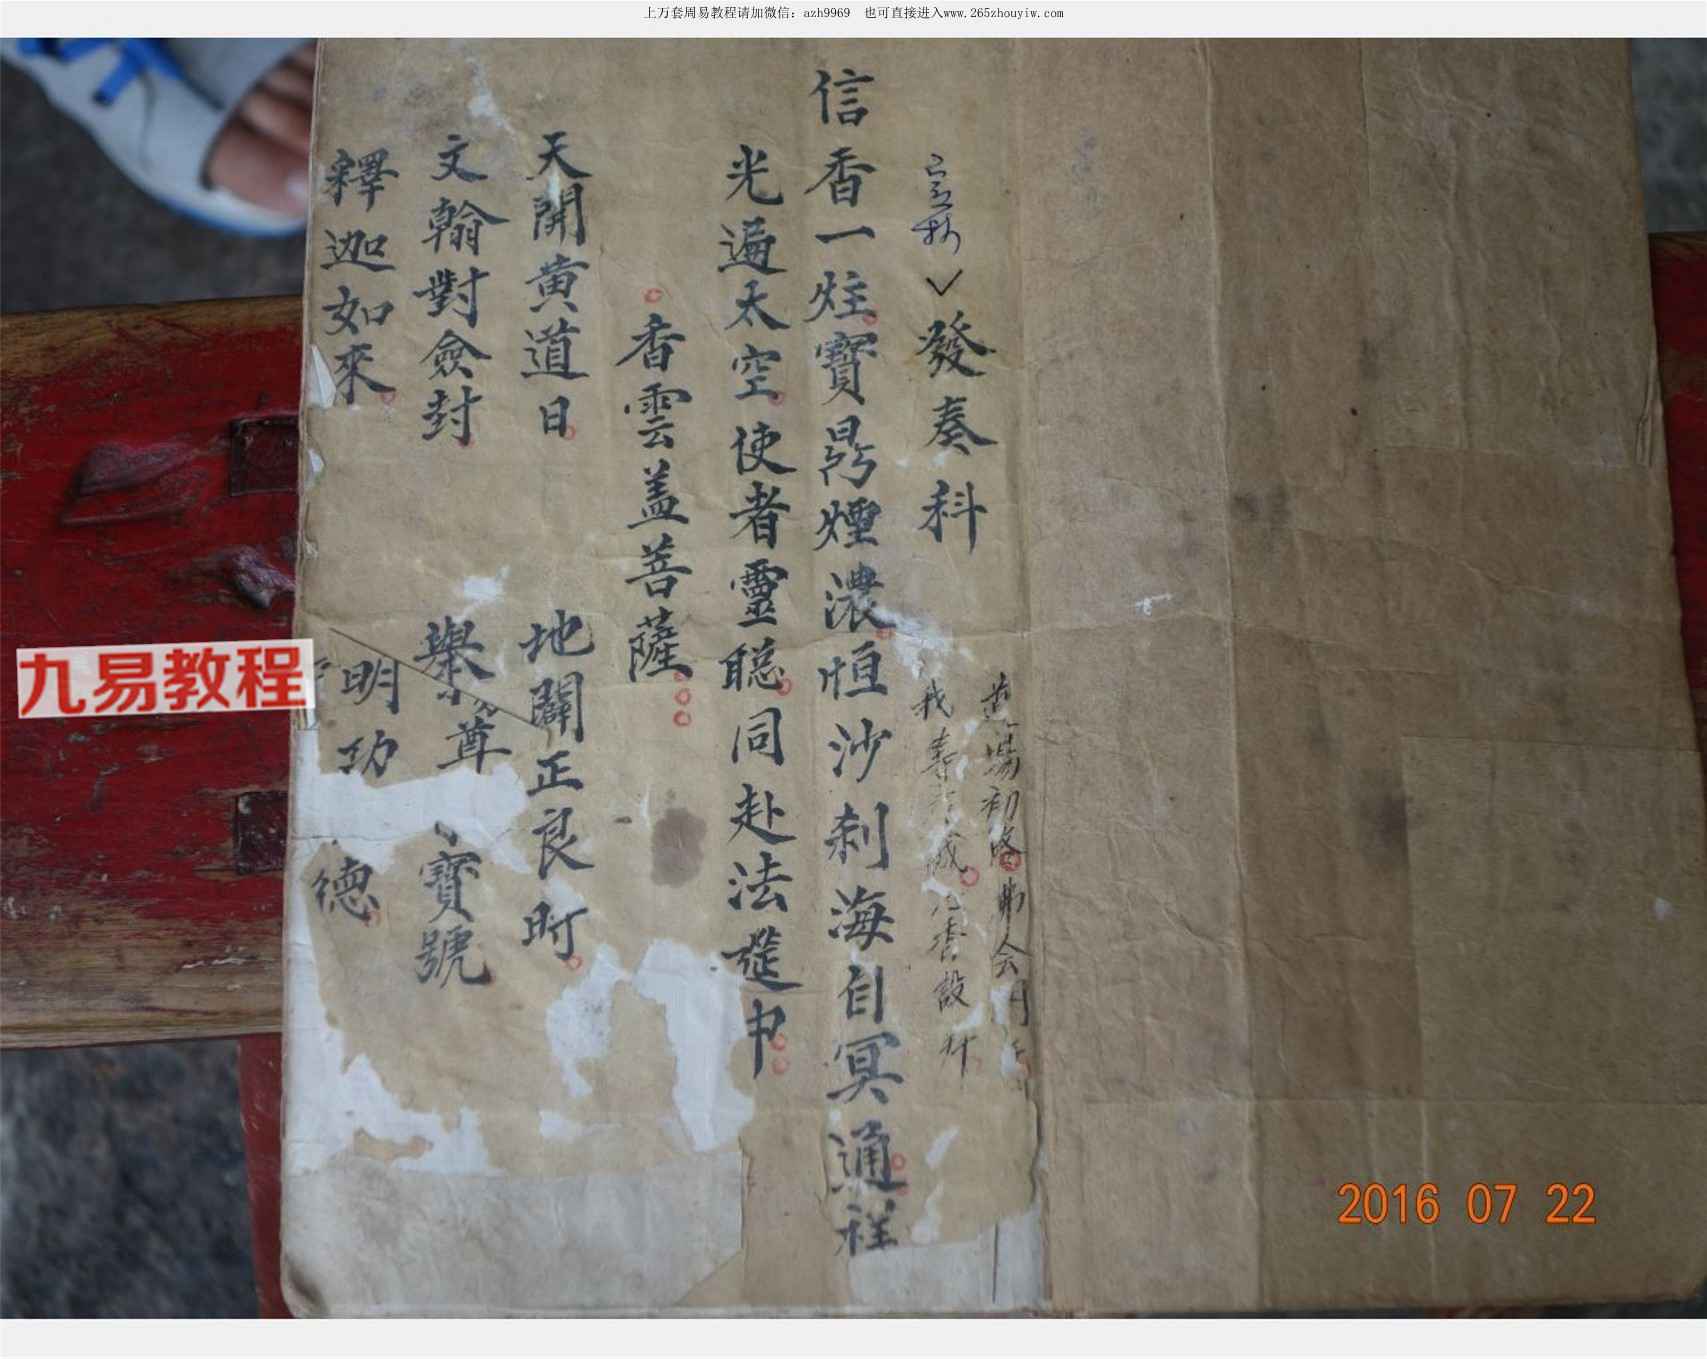 上万套周易教程请加微信：azh9969 也可直接进入www.265zhouyiw.com
發奏科
信香一炷寶鼎煙濃恒沙刹海自冥通程
光遍太空使者靈聡同赴法筵中
香雲盖菩薩
天開黄道日 地闢正良时
文翰對僉封 舉尊寶號
釋迦如來 明功德
九易教程
2016 07 22